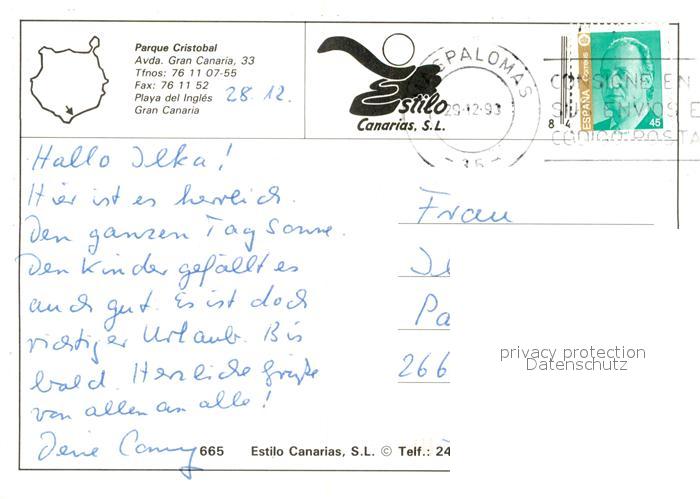 Parque Cristobal
Avda. Gran Canaria, 33
Tfnos: 76 11 07-55
Fax: 76 11 52
Playa del Inglés
Gran Canaria
28.12.
Estilo
Canarias, S.L.
SPALOMAS
29-12-93
-35-
CONSIGNE EN
SUS ENVIOS E
CODIGO POSTA
8 4
ESPAÑA Correos
45
Hallo Ilka!
Hier ist es herrlich.
Den ganzen Tag Sonne.
Den Kinder gefällt es
auch gut. Es ist doch
richtiger Urlaub. Bis
bald. Herzliche Grüße
von allen an alle!
Deine Conny
Frau
Il
Pa
266
privacy protection
Datenschutz
665 Estilo Canarias, S.L. © Telf.: 24